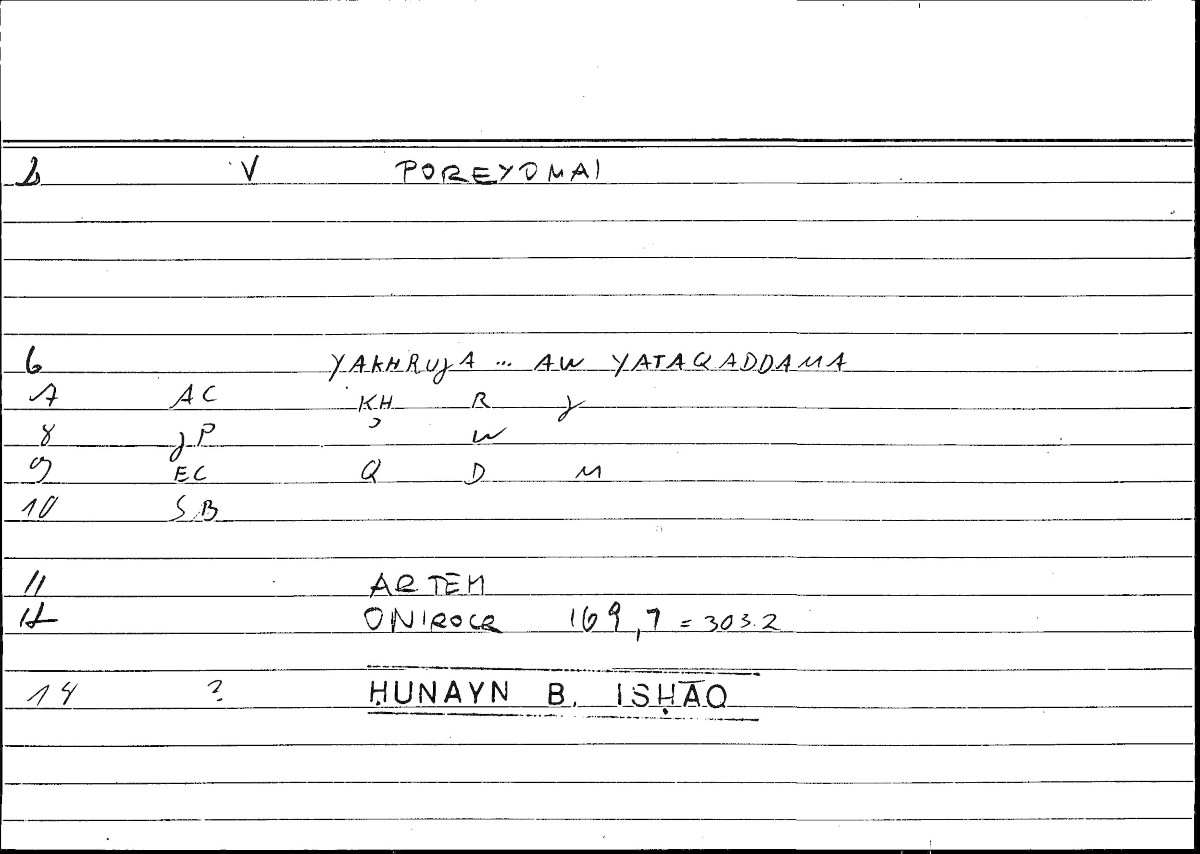 1 V POREYOMAI
6 YAKHRUJA ... AW YATAQADDAMA
7 AC KH R J
8 JP ʾ W
9 EC Q D M
10 SB
11 ARTEM
12 ONIROCR 169,7 = 303.2
14 ? ḤUNAYN B. ISḤĀQ